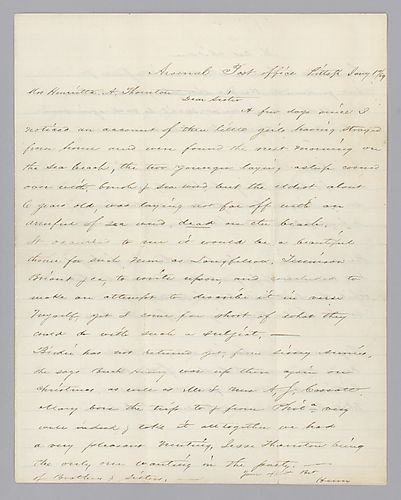 Arsenal Post office Pittsb Jany 1st/79
Mrs Henrietta A. Thornton
Dear Sister
A few days since I
noticed an account of three little girls having strayed
from home and were found the next morning on
the sea beach, the two younger laying asleep covered
over with brush & sea weed, but the eldest about
6 years old, was laying not far off with an
armful of sea weed, dead on the beach,
It occurred to me it would be a beautiful
theme for such men as Longfellow, Tennison
Briant &ca, to write upon, and concluded to
make an attempt to describe it in verse
Myself, yet I come far short of what they
could do with such a subject, —
Birdie has not returned yet, from
she says Buck Henry was up there again on
christmas as well as Mr & Mrs A. J. Cassatt.
Mary bore the trip to & from Phila very
well indeed, & take it alltogether we had
a very pleasant meeting, Jesse Thornton being
the only one wanting in the party. —
of Brothers & Sisters, —